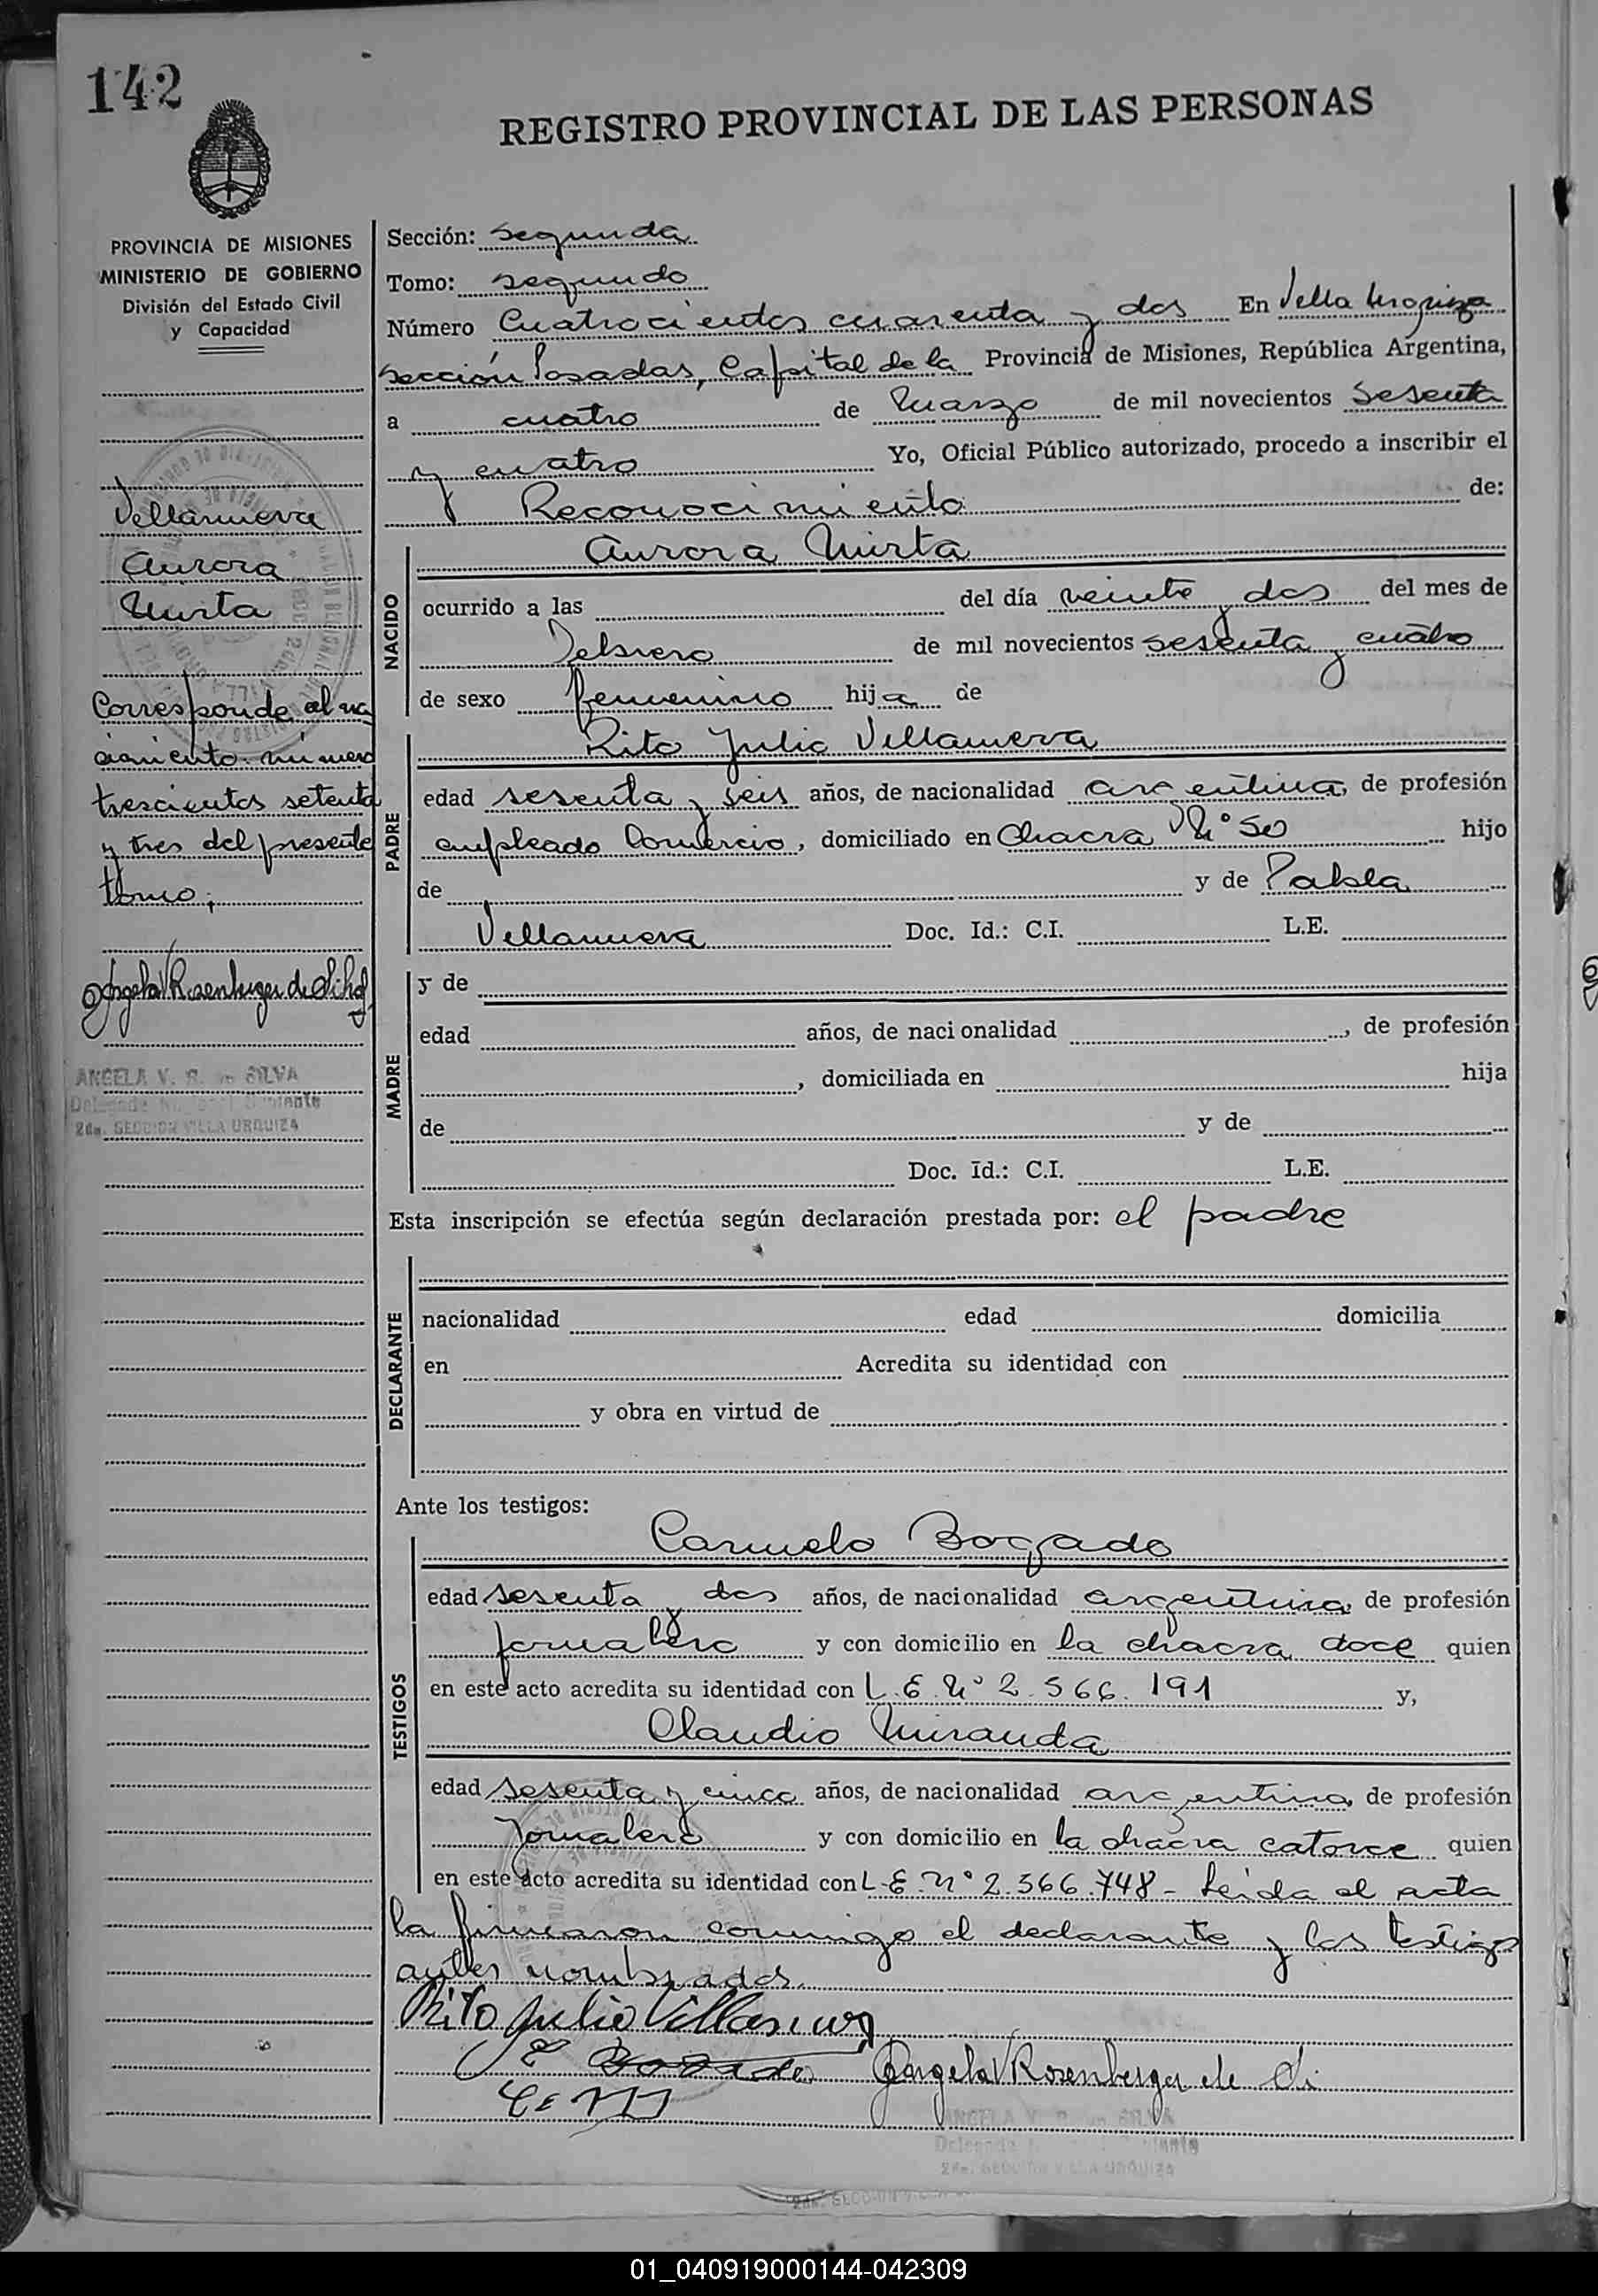 142
REGISTRO PROVINCIAL DE LAS PERSONAS
PROVINCIA DE MISIONES
MINISTERIO DE GOBIERNO
División del Estado Civil
y Capacidad
Villanueva
Aurora
Mirta
Corresponde al na
cimiento número
trescientos setenta
y tres del presente
tomo;
Angela V Rosenberger de Silva
ANGELA V. R. de SILVA
2da. SECCION VILLA URQUIZA
Sección: Segunda
Tomo: segundo
Número Cuatrocientos cuarenta y dos En Villa Urquiza
Sección Posadas, Capital de la Provincia de Misiones, República Argentina,
a cuatro de Marzo de mil novecientos Sesenta
y cuatro Yo, Oficial Público autorizado, procedo a inscribir el
Reconocimiento de:
Aurora Mirta
NACIDO
ocurrido a las del día veinte y dos del mes de
Febrero de mil novecientos sesenta y cuatro
de sexo femenino hija de
PADRE
Rito Julio Villanueva
edad sesenta y seis años, de nacionalidad argentina, de profesión
empleado Comercio, domiciliado en Chacra Nº 50 hijo
de y de Pabla
Villanueva Doc. Id.: C.I. L.E.
MADRE
y de
edad años, de nacionalidad , de profesión
, domiciliada en hija
de y de
Doc. Id.: C.I. L.E.
Esta inscripción se efectúa según declaración prestada por: el padre
DECLARANTE
nacionalidad edad domicilia
en Acredita su identidad con
y obra en virtud de
Ante los testigos:
TESTIGOS
Carmelo Bogado
edad sesenta y dos años, de nacionalidad argentina, de profesión
jornalero y con domicilio en la chacra doce quien
en este acto acredita su identidad con L.E. Nº 2.566.191 y,
Claudio Miranda
edad sesenta y cinco años, de nacionalidad argentina, de profesión
jornalero y con domicilio en la chacra catorce quien
en este acto acredita su identidad con L-E. Nº 2.566.748 - Leída el acta
la firmaron conmigo el declarante y los testigos
antes nombrados.
Rito Julio Villanueva
Bogado Angela V Rosenberger de Si
2da. SECCION VILLA URQUIZA
01_040919000144-042309